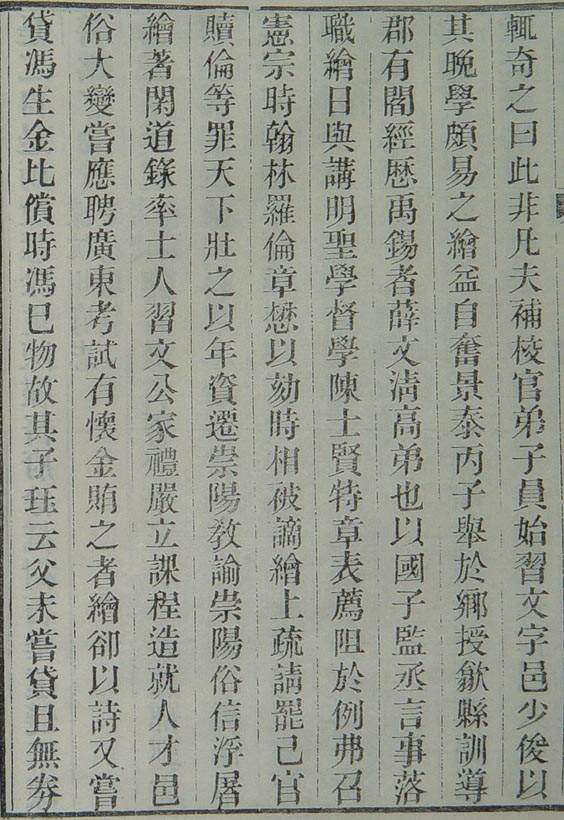 輒奇之曰此非凡夫補校官弟子員始習文字邑少俊以
其晚學頗易之繪益自奮景泰丙子舉於鄉授歙縣訓導
郡有閻經歷禹錫者薛文淸高弟也以國子監丞言事落
職繪日與講明聖學督學陳士賢特章表薦阻於例弗召
憲宗時翰林羅倫章懋以劾時相被謫繪上疏請罷己官
贖倫等罪天下壯之以年資遷崇陽敎諭崇陽俗信浮屠
繪著閑道錄率士人習文公家禮嚴立課程造就人才邑
俗大變嘗應聘廣東考試有懷金賄之者繪卻以詩又嘗
貸馮生金比償時馮已物故其子珏云父未嘗貸且無券